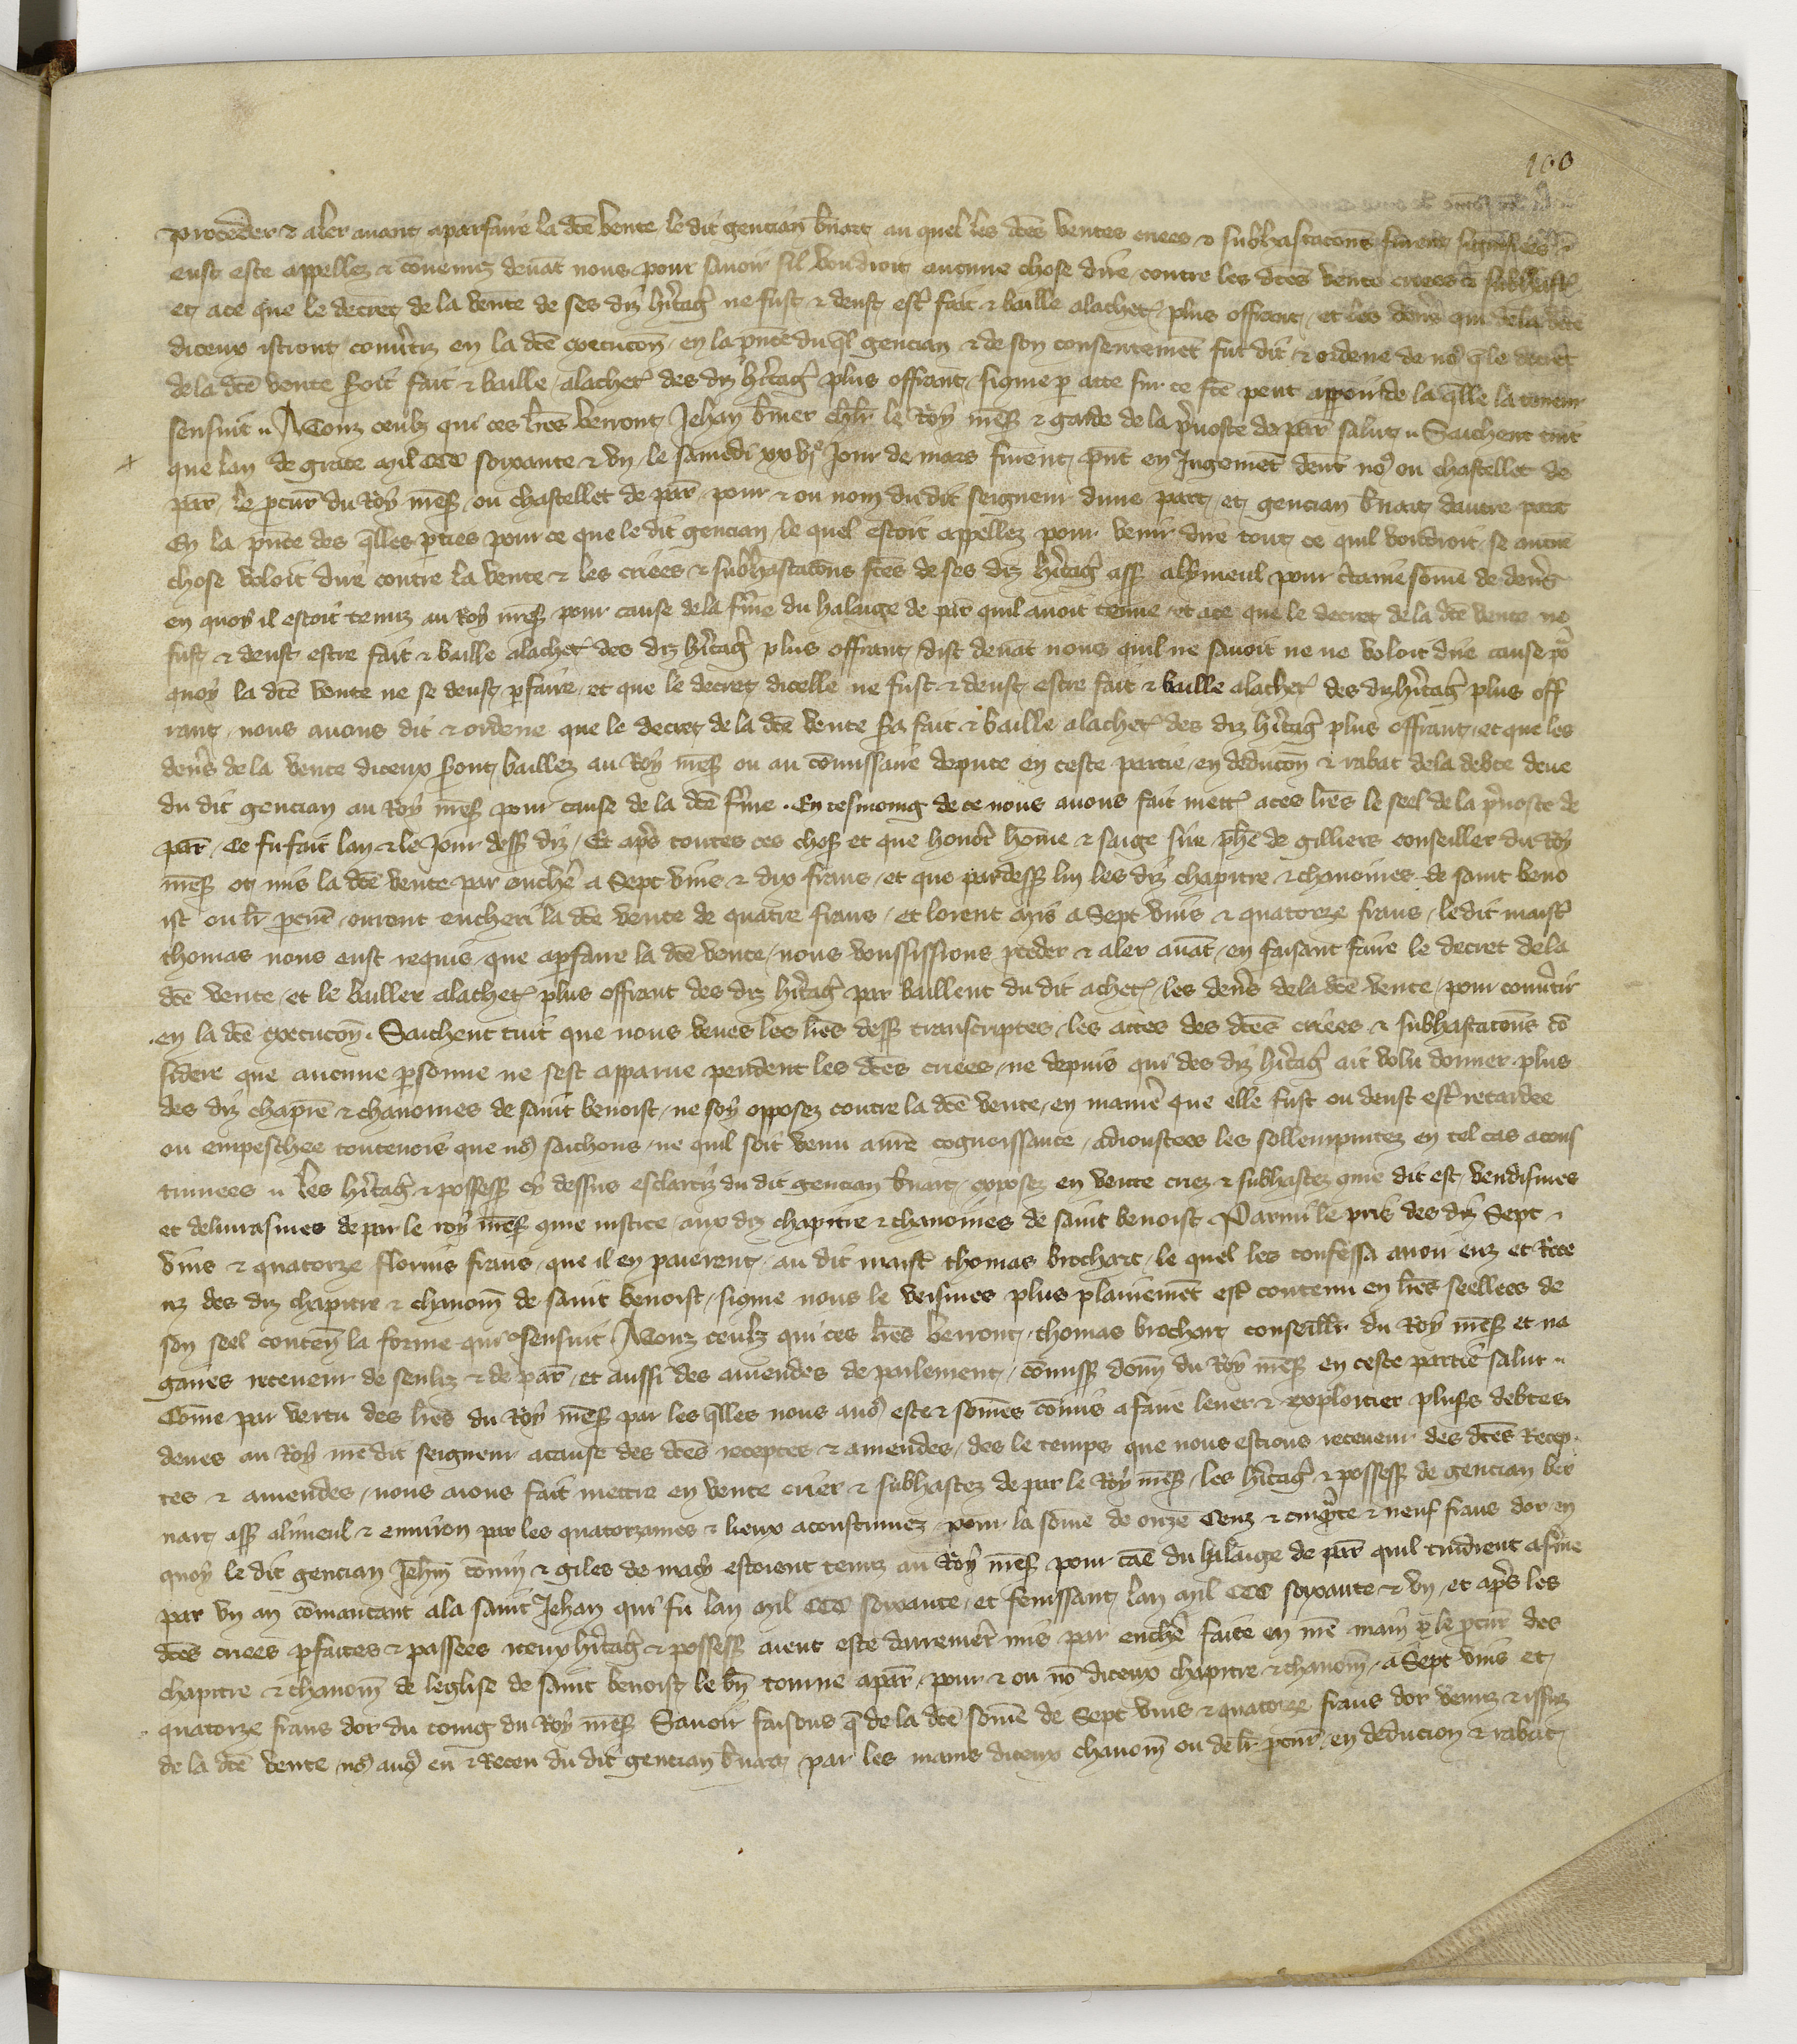 100
proceder & aler avant aparfaire la dcē vente le dit gencian b̄nart au quel les dcēs ventes criees & subhastacōns furent signifiees
eust este appellez & cōvenuz devāt nous pour savoir sil vouldroit aucune chose dire contre les dcēs vente criees & subhast
et ace que le decret de la vente de ses diz hr̄itaǵ ne fust & deust estr̄ fait & baille alachet plus offrant et les den̄rs qui de la dcē
diceux istront convr̄tiz en la dcē execucōn en la pn̄ce du ql̄ gencian & de son consentemēt fut dit & ordene de no᷒ q̄ le decret
de la dcē vente seroit fait & baille alachet des diz hr̄itaǵ plus offrant sicōme p̱ acte sur ce fcē peut apparoir de la q̄lle la teneur
sensuit A touz ceulz qui ces lr̄es verront Jehan b̄nier chlr̄ le Roy nr̄e s̄ & garde de la p̄voste de par̄ salut Saichent tuit
que lan de grace mil CCC soixante & un le samedi xxvje Jour de mars furent pn̄s en Jugemēt devāt no᷒ ou chastellet de
par̄ le p̱cur̄ du Roy nr̄e s̄ ou chastellet de par̄ pour & ou nom du dit seigneur dune part et gencian b̄nart dautre part
En la pn̄ce des q̄lles p̱ties pour ce que le dit gencian le quel estoit appellez pour venir dire tout ce quil voudroit se aucune
chose voloit dire contre la vente & les criees & subhastacōns fcēs de ses diz hr̄itaǵ ass̄ alymeul pour c̄taine sōme de den̄rs
en quoy il estoit tenuz au Roy nr̄e s̄ pour cause de la fr̄me du halaige de par̄ quil avoit tenue et ace que le decret de la dcē vente ne
fust & deust estre fait & baille alachet des diz hr̄itaǵ plus offrant dist devāt nous quil ne savoit ne ne voloit dire cause po
quoy la dcē vente ne se deust p̱faire et que le decret dicelle ne fust & deust estre fait & baille alachet des diz hr̄itaǵ plus off
rant nous avons dit & ordene que le decret de la dcē vente sera fait & baille alachet des diz hr̄itaǵ plus offrant et que les
den̄rs de la vente diceux seront baillez au Roy nr̄e s̄ ou au cōmissaire depute en ceste partie en deducōn & rabat de la debte deue
du dit gencian au Roy nr̄e s̄ pour cause de la dcē fr̄me. En tesmoing de ce nous avons fait mettr̄ aces lr̄es le seel de la p̄voste de
par̄ Ce fu fait lan & le Jour dess̄ diz Et ap̄s toutes ces choses et que honor̄ hōme & saige sire ph̄e de gilliers conseiller du Roy
nr̄e s̄ ot mis la dcē vente par encher̄ a Sept vins & dix frans et que pardess̄ lui les diz chapitre & chanoines de saint beno
ist ou lr̄ p̱cur̄ eurent encheri la dcē vente de quatre frans et lorent mis a Sept vins & quatorze frans le dit maistr̄
thomas nous eust requis que ap̱faire la dcē vente nous voussissions p̱ceder & aler avāt en faisant faire le decret dela
dcē vente et le bailler alachet plus offrant des diz hr̄itaǵ par baillent du dit achet les den̄rs dela dcē vente pour convr̄tir
en la dcē execucōn. Saichent tuit que nous veues les lr̄es dess̄ transcriptes les actes des dcēs criees & subhastacōns cō
sidere que aucune p̱sonne ne sest apparue pendent les dcēs criees ne depuis qui des diz hr̄itaǵ ait volu donner plus
des diz chapitr̄e & chanoines de saint benoist ne soy opposez contre la dcē vente en manier̄ que elle fust ou deust estr̄ retardee
ou empeschee toutevois que no᷒ saichons ne quil soit venu anr̄e cognoissance adioustees les sollempnitez en tel cas acous
tumees les hr̄itaǵ & possess̄ cy dessus esclarciz du dit gencian b̄nart exposez en vente criez & subhastez cōme dit est vendismes
et delivrasmes de par le roy nr̄e s̄ cōme justice aux diz chapitre & chanoines de saint benoist Parmi le pris des diz Sept
vins & quatorze florins frans que il en paierent au dit maistr̄ thomas brochart le quel les confessa avoir euz et Rece
uz des diz chapitre & chanoīn de saint benoist sicōme nous le veismes plus plainemēt estr̄ contenu en lr̄es seellees de
son seel conten̄ la forme qui sensuit A touz ceulz qui ces lr̄es verront thomas brochart conseillr̄ du Roy nr̄e s̄ et na
gaires receveur de senliz & de par̄ et aussi des amendes de parlement cōmiss̄ donn̄ du Roy nr̄e s̄ en ceste partie salut
Cōme par vertu des lr̄es du Roy nr̄e s̄ par les q̄lles nous avo᷒ este & sōmes cōmis afaire lever & exploitier plus̄rs debtes
deues au Roy nr̄e dit seigneur acause des dcēs receptes & amendes des le temps que nous estions receveur des dcēs Recep
tes & amendes nous aions fait mettre en vente crier & subhastez de par le Roy nr̄e s̄ les hr̄itaǵ & possess̄ de gencian ber
nart ass̄ alimeul & environ par les quatorzaines & lieux acoustumez pour la sōme de onze Cenz & cinqnte & neuf frans dor en
quoy le dit gencian Jeh̄n & giles de macy estoient tenuz au Roy nr̄e s̄ pour caē du halaige de par̄ quil tindrent afr̄me
par un an cōmancant ala saint Jehan qui fu lan mil CCC soixante et fenissant lan mil CCC soixante & un et ap̄s les
dcēs criees p̱faites & passees iceux hr̄itaǵ & possess̄ aient este darrenier̄ mis par encher̄ faite en nr̄e main p̱ le p̱cur̄ des
chapitre & chanoīn de leglise de saint benoist le bn̄ tourne apar̄ pour & ou nō diceux chapitre & chanoīn a Sept vins et
quatorze frans dor du coing du Roy nr̄e s̄ Savoir faisons q̄ de la dcē sōme de Sept vins & quatorze frans dor venuz & issuz
de la dcē vente no᷒ avo᷒ eu & Receu du dit gencian b̄nart par les mains diceux chanoīn ou de lr̄ p̱cur̄ en deducion & rabat